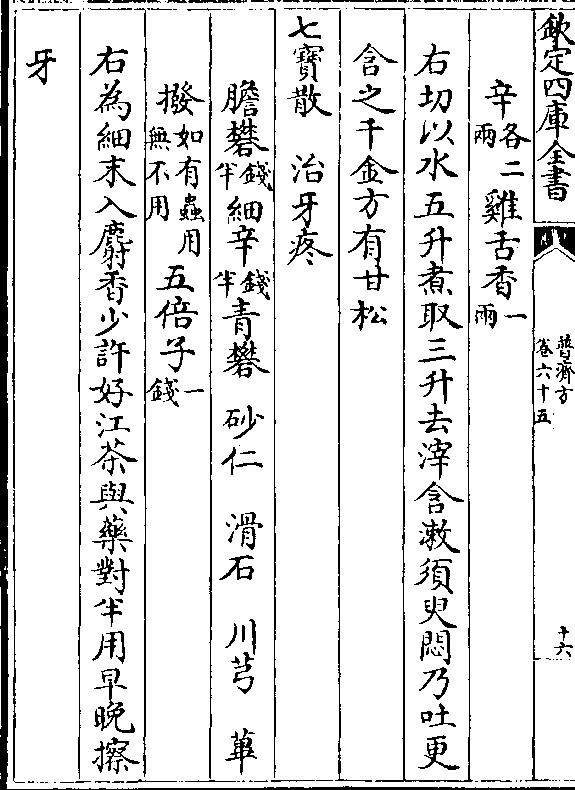 欽定四庫全書
普濟方
卷六十五
十六
辛各二兩雞舌香一兩
右切以水五升煮取三升去滓含漱須臾悶乃吐更
含之千金方有甘松
七寶散　治牙疼
膽礬半錢細辛半錢青礬　砂仁　滑石　川芎　蓽
撥如有蟲用無不用五倍子一錢
右為細末入麝香少許好江茶與藥對半用早晚擦
牙